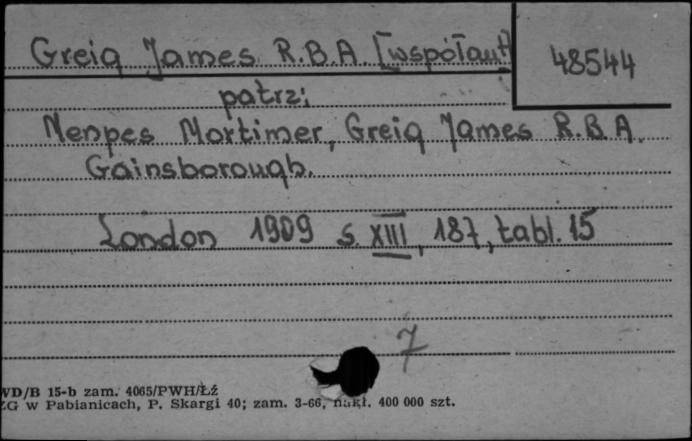 Greig James R.B.A [współaut]
48544
patrz:
Menpes Mortimer, Greig James R.B.A.
Gainsborough.
London 1909 s. XIII, 187, tabl. 15
7
WD/B 15-b zam. 4065/PWH/Łź
ZG w Pabianicach, P. Skargi 40; zam. 3-66, nakł. 400 000 szt.